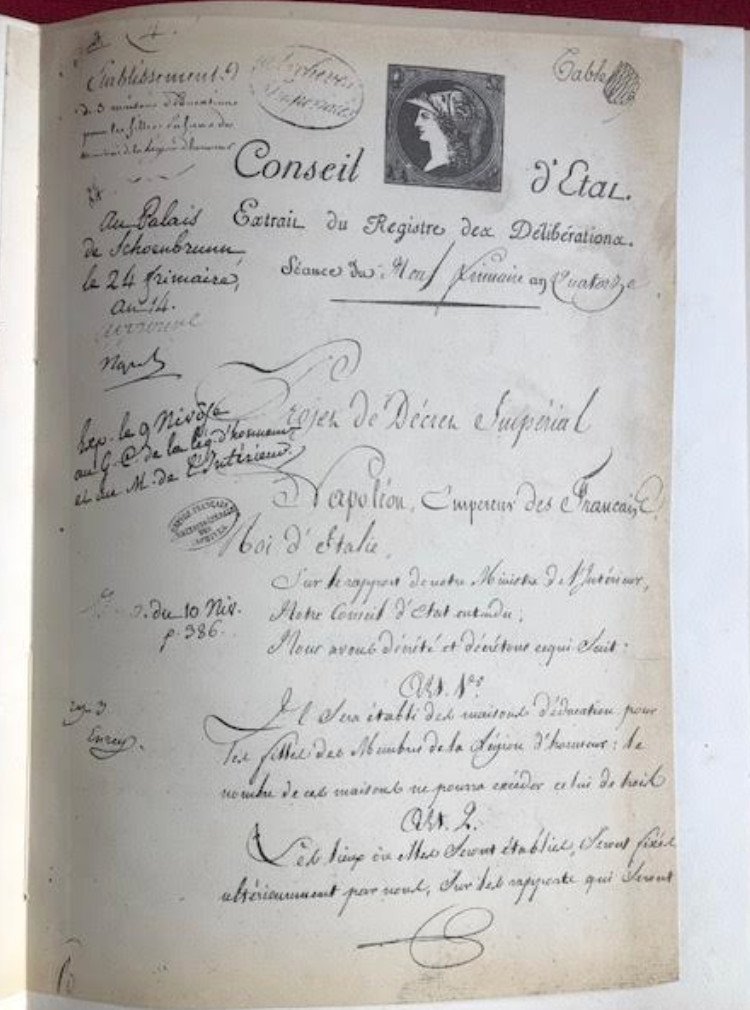 Etablissement
de 3 maisons d'éducation
pour les filles
membres de la Légion d'honneur
Archives
Impériales
Table
Conseil d'Etat.
Extrait du Registre des Délibérations.
Séance du Neuf frimaire an Quatorze
au Palais
de Schoenbrunn,
le 24 frimaire,
an 14.
approuvé
Nap
Projet de Décret Impérial
Exp. le 9 Nivôse
au G. C. de la Lég. d'honneur
et au M. de l'Intérieur
Napoléon, Empereur des Français,
Roi d'Italie,
Sur le rapport de notre Ministre de l'Intérieur,
Notre Conseil d'Etat entendu,
Nous avons décrété et décrétons ce qui Suit :
du 10 Niv.
p. 386.
Art. 1er
Il Sera établi des maisons d'éducation pour
les filles des Membres de la Légion d'honneur : le
nombre de ces maisons ne pourra excéder celui de trois
Art. 2.
Les lieux où elles Seront établies, Seront fixés
ultérieurement par nous, Sur les rapports qui Seront